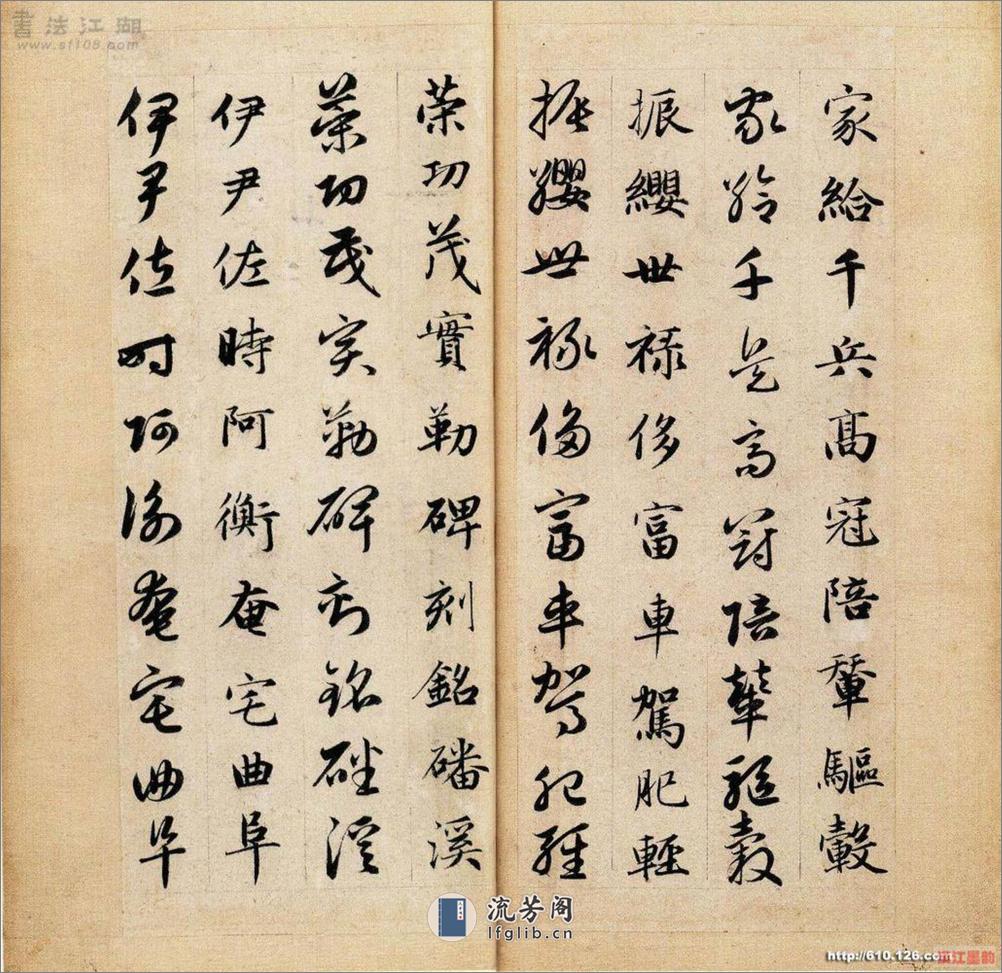 書法江湖
www.sf108.com
家給千兵高冠陪輦驅轂
家給千兵高冠陪輦驅轂
振纓世祿侈富車駕肥輕
振纓世祿侈富車駕肥輕
策功茂實勒碑刻銘磻溪
策功茂實勒碑刻銘磻溪
伊尹佐時阿衡奄宅曲阜
伊尹佐時阿衡奄宅曲阜
流芳阁
lfglib.cn
http://610.126.com
江墨韵